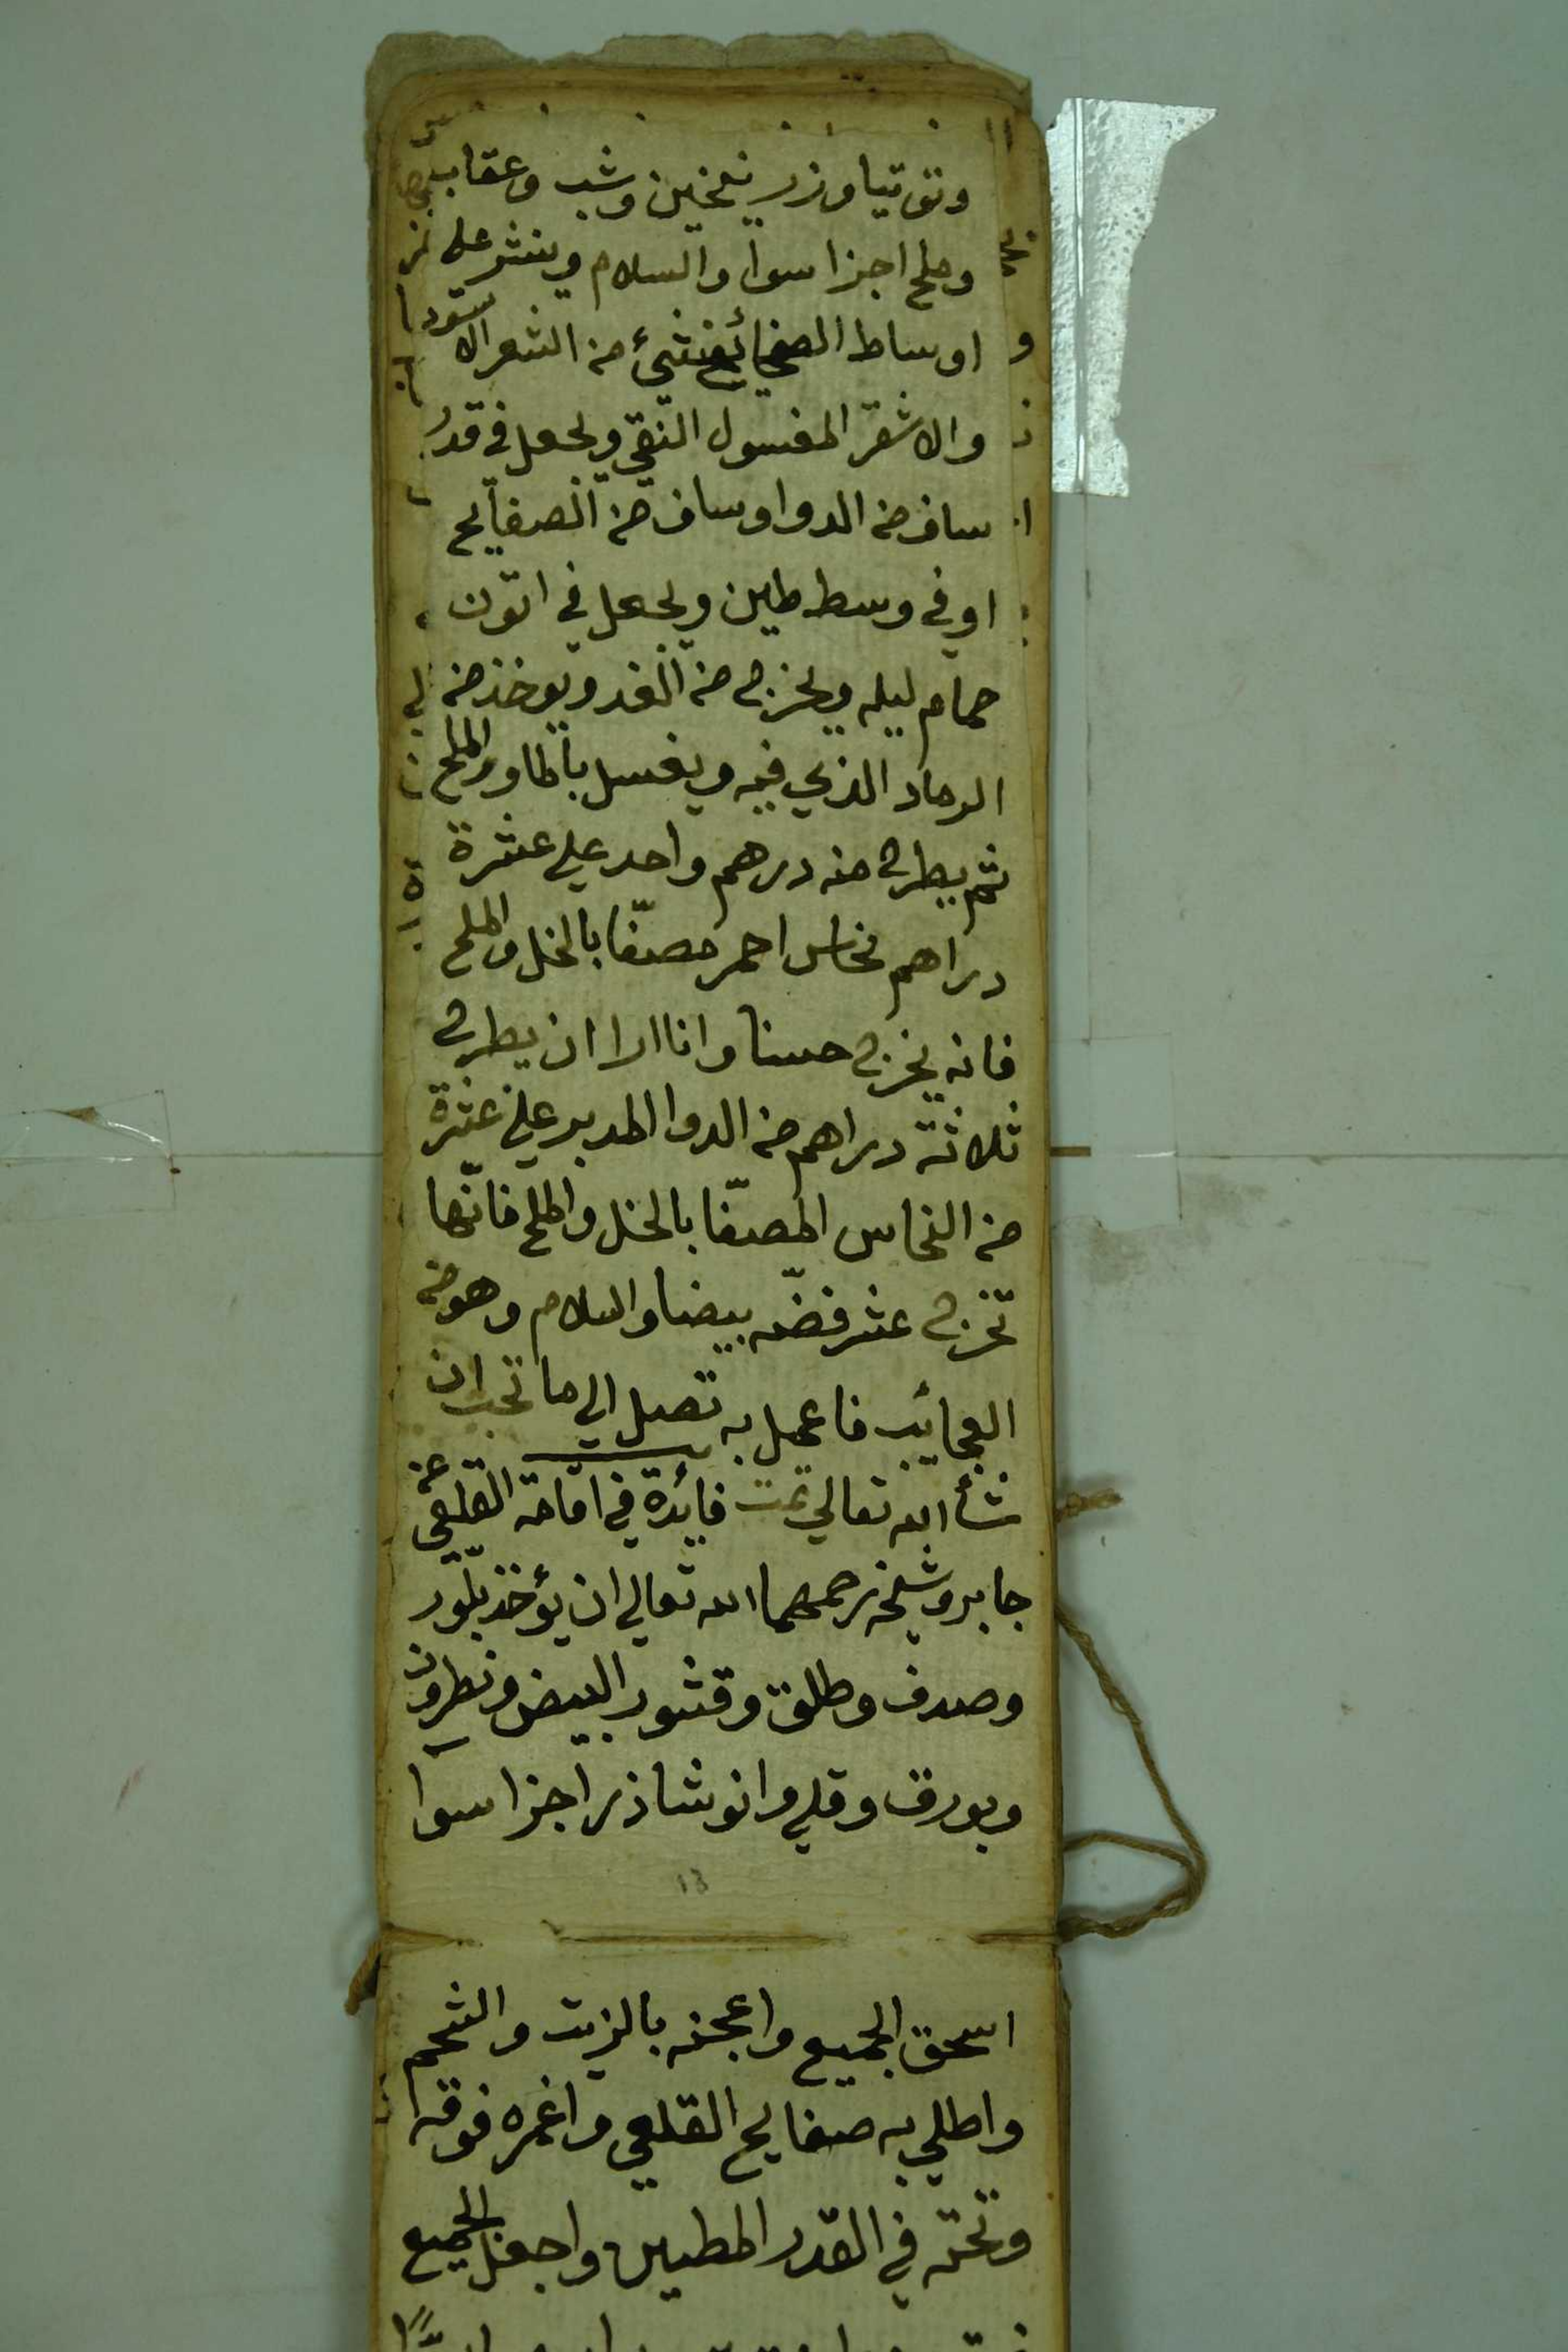 وتوتيا وزرنيخين وشب وعقاب
وملح اجزا سوا والسلام وينثر على
اوساط الصفائح شيئ من الشعر الاسود
والاشقر المغسول النقي ويجعل في قدر
ساف من الدوا وساف من الصفايح
اوفي وسط طين ويجعل في اتون
حمام ليله ويخرج من الغد ويوخذ من
الرماد الذي فيه ويغسل بالما والملح
ثم يطرح منه درهم واحد علي عشرة
دراهم نحاس احمر مصفّا بالخل والملح
فانه يخرج حسنا وانا ارا ان يطرح
ثلاثة دراهم من الدوا المدبر علي عشرة
من النحاس المصفّا بالخل والملح فانّها
تخرج عشر فضّه بيضا والسلام وهو من
العجايب فاعمل به تصل الي ما تحب ان
شأ الله تعالي تمت فائدة في اقامة القلعي عن
جابر وشيخه رحمهما الله تعالي ان يؤخذ بلّور
وصدف وطلق وقشور البيض ونطرون
وبورق وقلي وانوشاذر اجزا سوا
13
اسحق الجميع واعجنه بالزيت والشحم
واطلي به صفايح القلعي واغمره فوقه
وتحته في القدر المطين واجعل الجميع